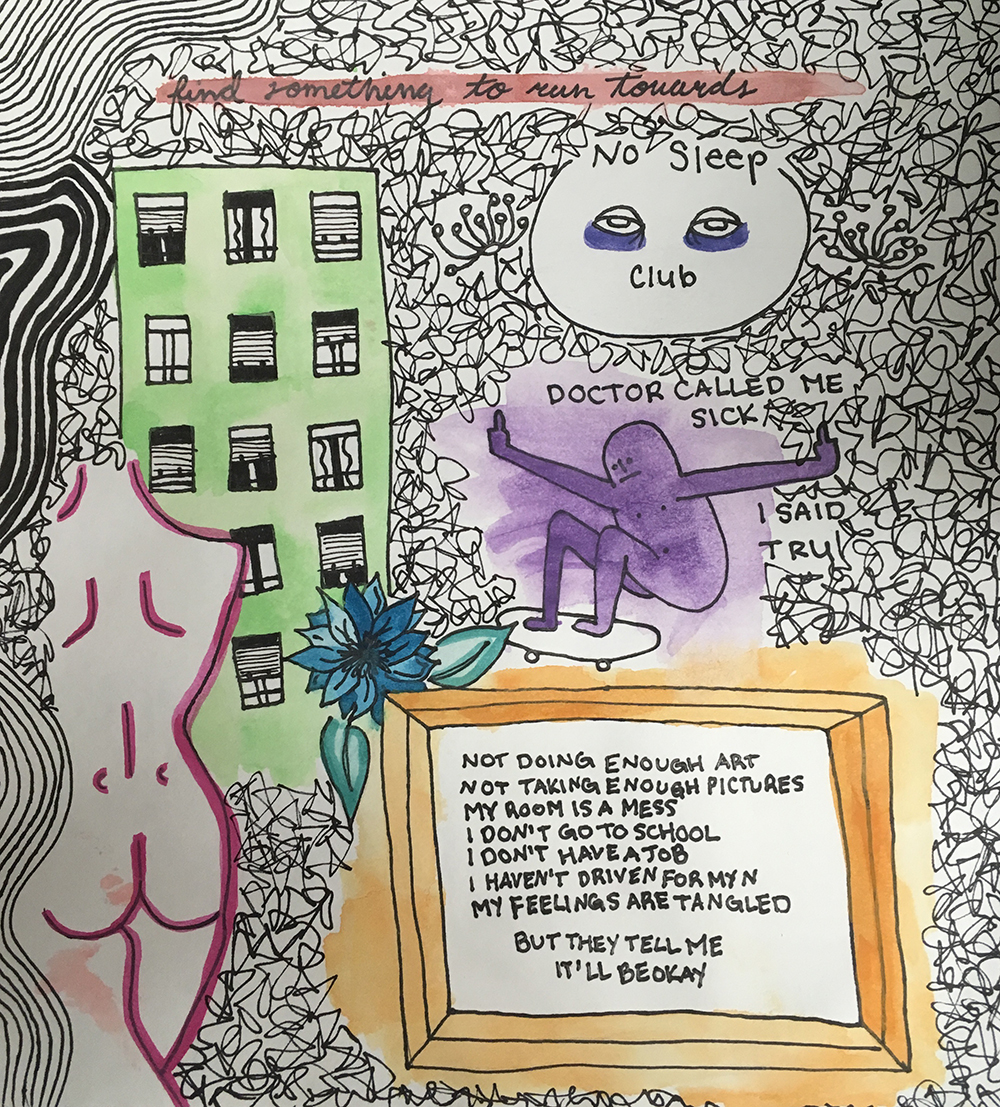 find something to run towards
No Sleep
Club
DOCTOR CALLED ME
SICK
I SAID
TRUE
NOT DOING ENOUGH ART
NOT TAKING ENOUGH PICTURES
MY ROOM IS A MESS
I DON'T GO TO SCHOOL
I DON'T HAVE A JOB
I HAVEN'T DRIVEN FOR MY N
MY FEELINGS ARE TANGLED
BUT THEY TELL ME
IT'LL BE OKAY